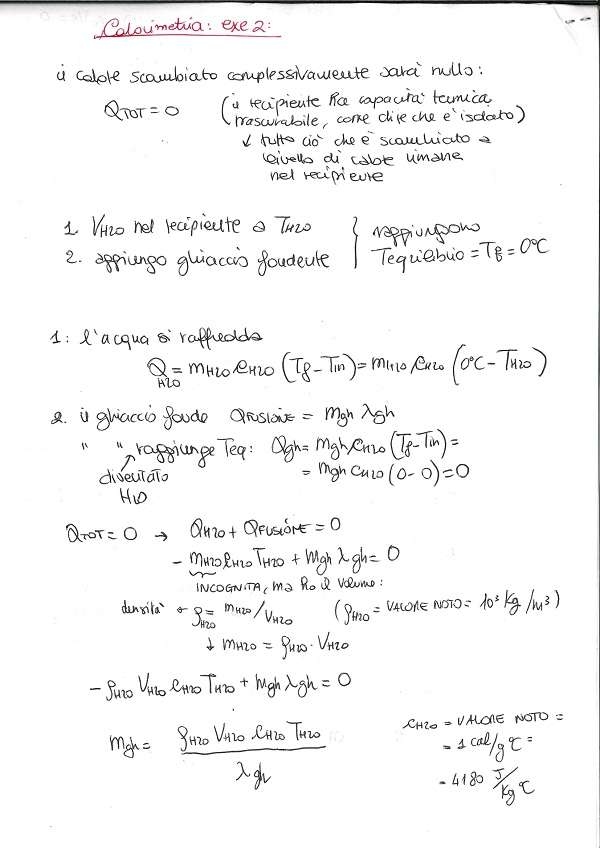 Calorimetria: exe 2:
il calore scambiato complessivamente sarà nullo:
QTOT = 0 (il recipiente ha capacità termica
trascurabile, come dire che è isolato)
↓ tutto ciò che è scambiato a
livello di calore rimane
nel recipiente
1. VH2O nel recipiente a TH2O } raggiungono
2. aggiungo ghiaccio fondente Tequilibrio = Tf = 0°C
1: l'acqua si raffredda
QH2O = mH2O cH2O (Tf - Tin) = mH2O cH2O (0°C - TH2O)
2. il ghiaccio fonde QFUSIONE = mgh λgh
" " raggiunge Teq: Qgh = mgh cH2O (Tf - Tin) =
diventato = mgh cH2O (0 - 0) = 0
H2O
QTOT = 0 → QH2O + QFUSIONE = 0
- mH2O cH2O TH2O + mgh λgh = 0
INCOGNITA, ma ho il volume:
densità ← ρH2O = mH2O / VH2O (ρH2O = VALORE NOTO = 10³ Kg/m³)
↓ mH2O = ρH2O · VH2O
- ρH2O VH2O cH2O TH2O + mgh λgh = 0
mgh = ρH2O VH2O cH2O TH2O / λgh
cH2O = VALORE NOTO =
= 1 cal/g °C =
= 4180 J/Kg °C